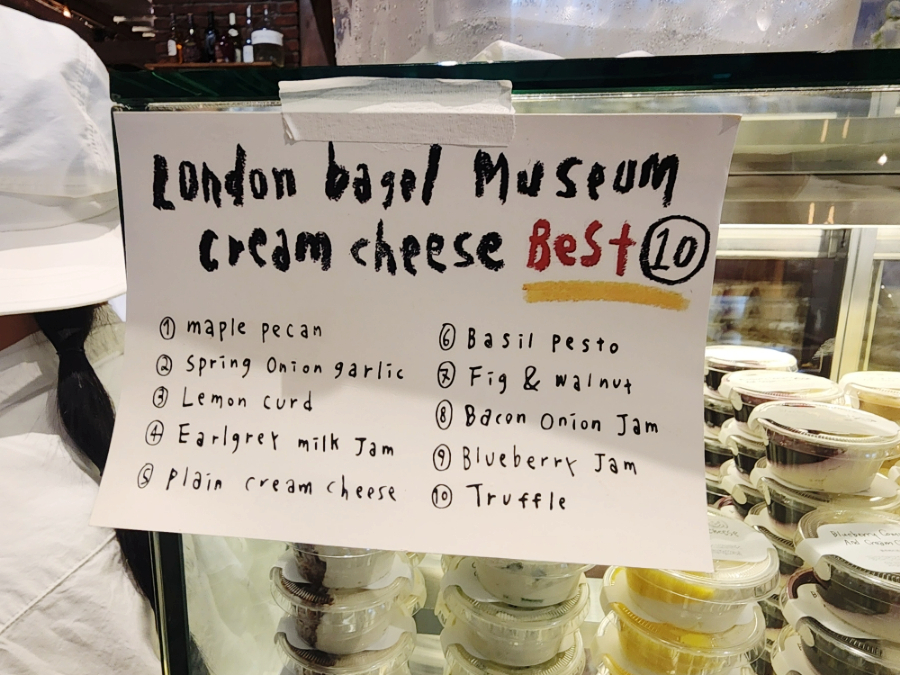 London bagel Museum
cream cheese BeSt ⑩
① maple pecan
② Spring Onion garlic
③ Lemon curd
④ Earlgrey milk Jam
⑤ Plain cream cheese
⑥ Basil Pesto
⑦ Fig & walnut
⑧ Bacon Onion Jam
⑨ Blueberry Jam
⑩ Truffle